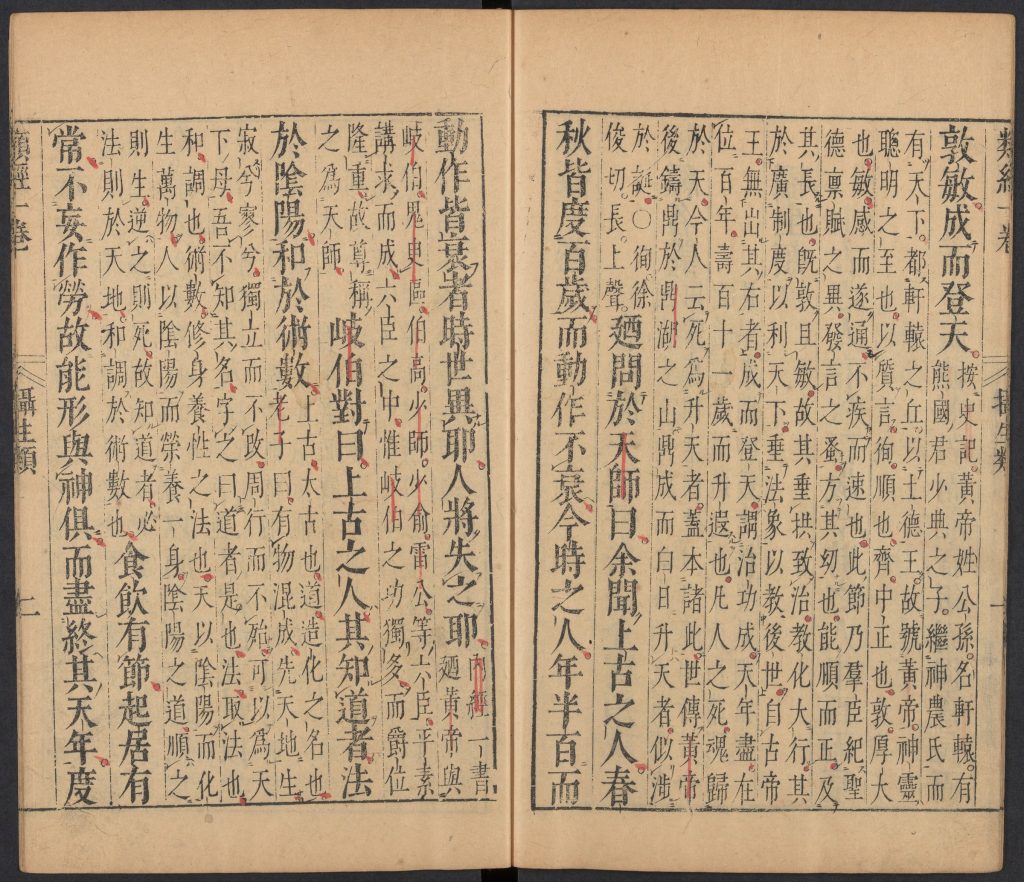 類經一卷 攝生類 一
敦敏成而登天。按史記黃帝姓公孫名軒轅有
熊國君少典之子繼神農氏而
有天下都軒轅之丘以土德王故號黃帝神靈
聰明之至也以質言徇順也齊中正也敦厚大
也敏感而遂通不疾而速也此節乃羣臣紀聖
德稟賦之異發言之蚤方其幼也能順而正及
其長也旣敦且敏故其垂拱致治教化大行其
於廣制度以利天下垂法象以教後世自古帝
王無出其右者成而登天謂治功成天年盡在
位百年壽百十一歲而升遐也凡人之死魂歸
於天今人云死爲升天者蓋本諸此世傳黃帝
後鑄鼎於鼎湖之山鼎成而白日升天者似涉
於誕〇徇徐
俊切長上聲
廼問於天師曰余聞上古之人春
秋皆度百歲而動作不衰今時之人年半百而
動作皆衰者時世異耶人將失之耶內經一書
廼黃帝與
岐伯鬼臾區伯高少師少俞雷公等六臣平素
講求而成六臣之中惟岐伯之功獨多而爵位
隆重故尊稱
之爲天師
岐伯對曰上古之人其知道者法
於陰陽和於術數上古太古也道造化之名也
老子曰有物混成先天地生
寂兮寥兮獨立而不改周行而不殆可以爲天
下母吾不知其名字之曰道者是也法取法也
和調也術數修身養性之法也天以陰陽而化
生萬物人以陰陽而榮養一身陰陽之道順之
則生逆之則死故知道者必
法則於天地和調於術數也
食飲有節起居有
常不妄作勞故能形與神俱而盡終其天年度
類經一卷 攝生類 二